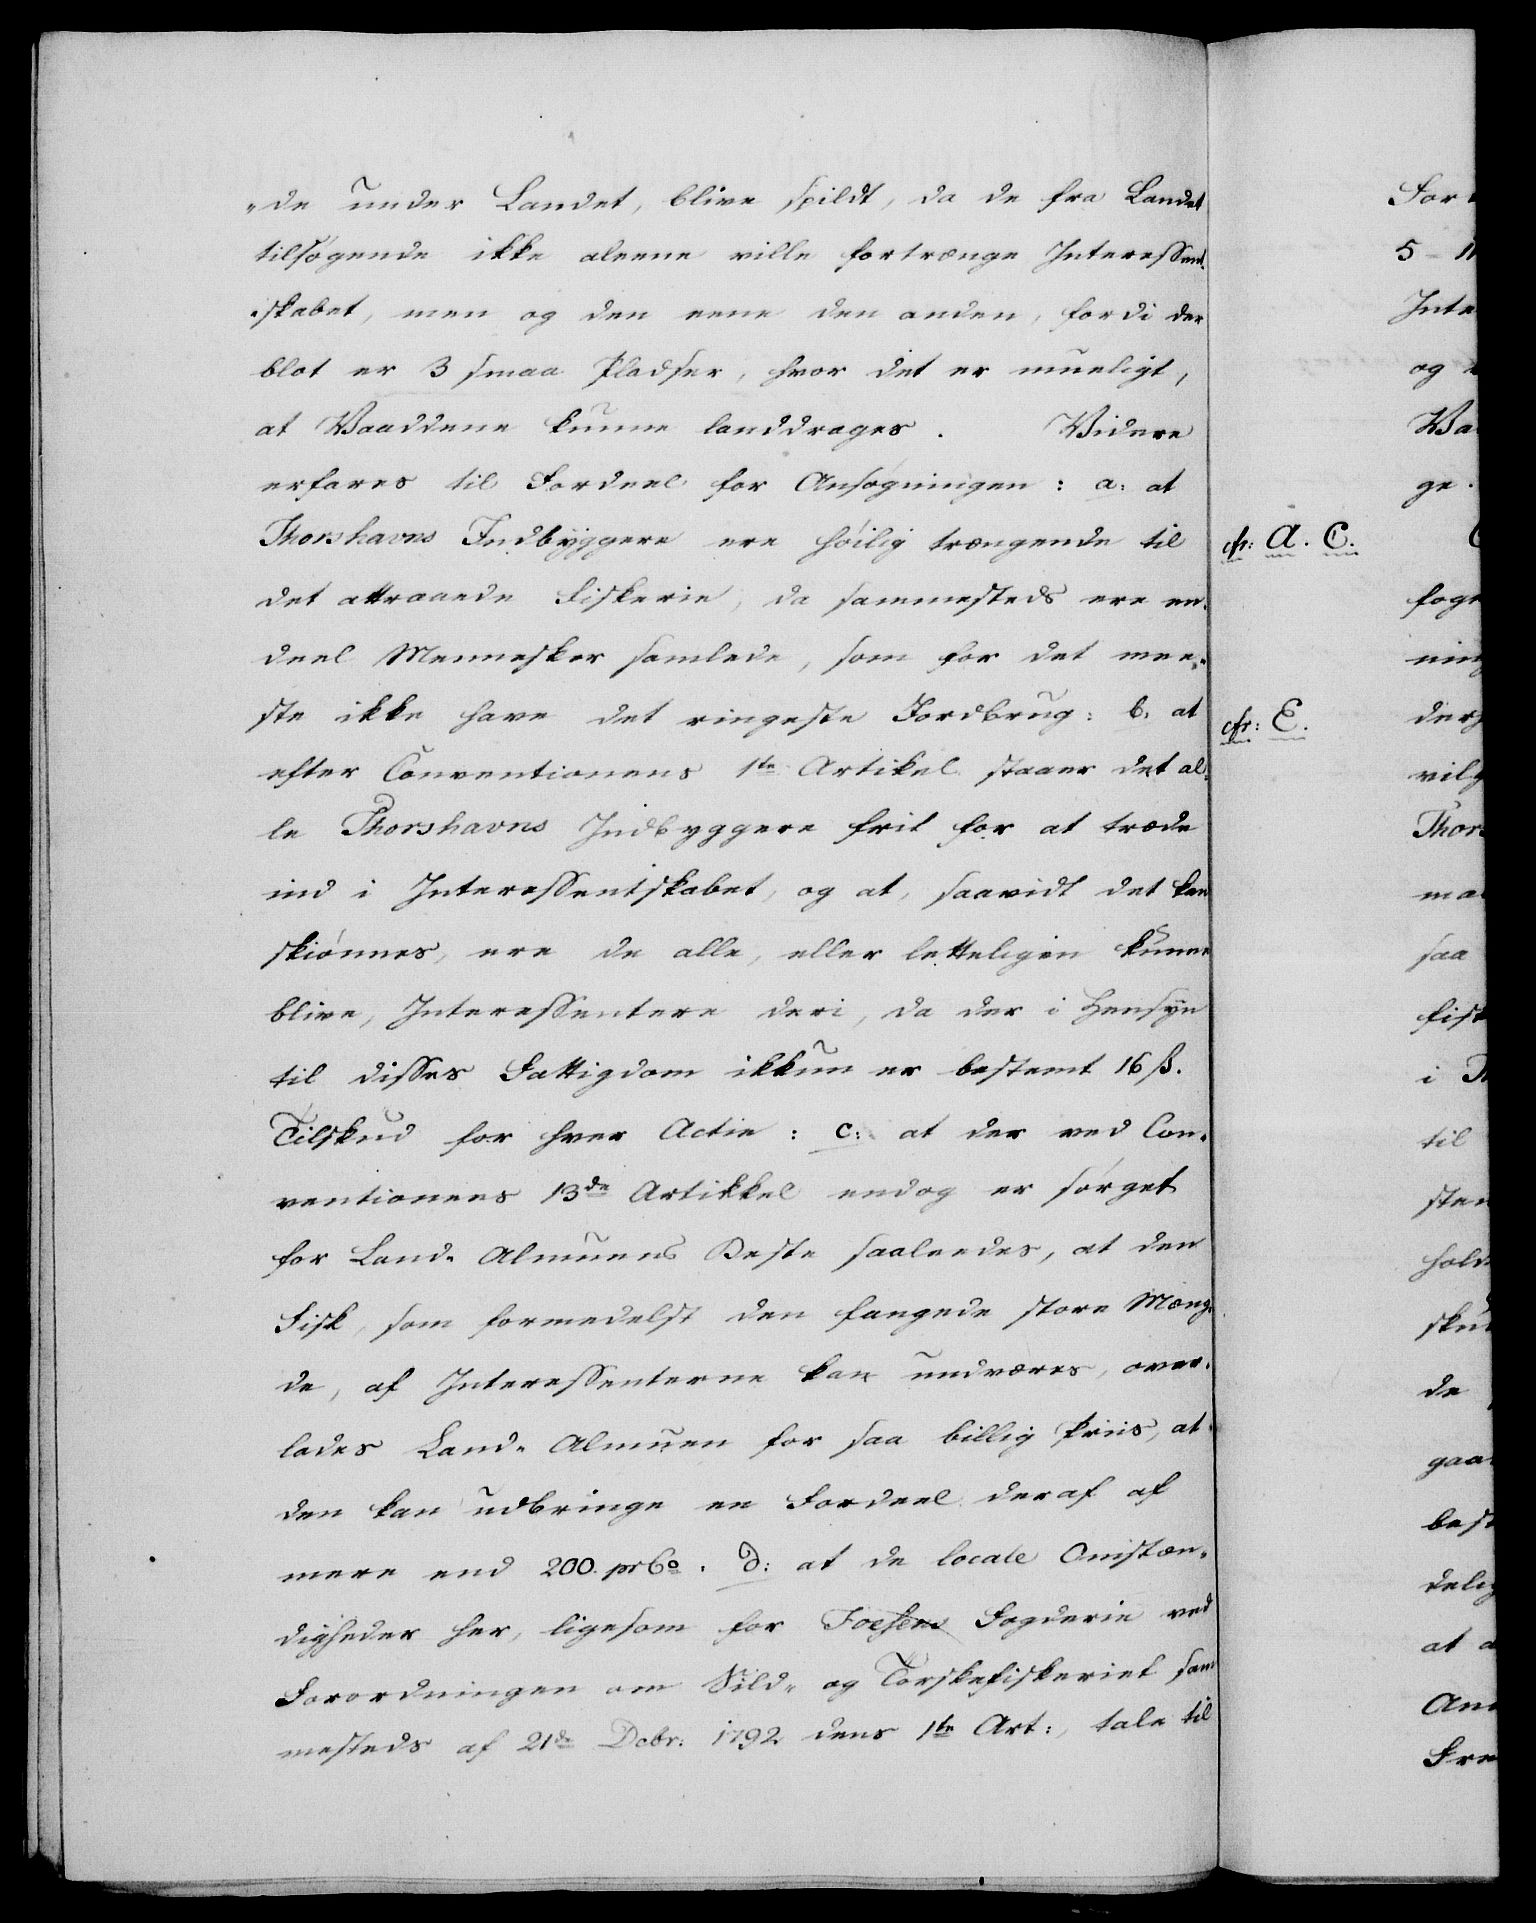 "de under Landet, blive spildt, da de fra Landet
tilsøgende ikke aleene ville fortrænge Interessent-
-skabet, men og den eene den anden, fordi der
blot er 3 smaa Pladser, hvor det er mueligt,
at Waaddene kunne landdrages. Widere
erfares til Fordeel for Ansøgningen: a: at
Thorshavns Indbyggere ere høilig trængende til
det attraaede Fiskerie, da sammesteds ere en-
deel Mennesker samlede, som for det mee-
ste ikke have det ringeste Jordbrug: b. at
efter Conventionens 1ste Artikel staaer det al-
le Thorshavns Indbyggere frit for at træde
ind i Interessentskabet, og at, saavidt det kan
skiønnes, ere de alle, eller letteligen kunne
blive, Interessentere deri, da der i Hensyn
til disses Fattigdom ikkun er bestemt 16 ß.
Tilskud for hver Actie: c: at der ved Con-
ventionens 13de Artikkel endog er sørget
for Land-Almuens Beste saaledes, at den
Fisk, som formedelst den fangede store Mæng-
de, af Interessenterne kan undværes, over-
lades Land-Almuen for saa billig Priis, at
den kan udbringe en Fordeel deraf af
mere end 200 prCo. d: at de locale Omstæn-
digheder her, ligesom for Foesens Fogderie ved
Forordningen om Sild- og Torskefiskeriet sam-
mesteds af 21de Decbr: 1792 dens 1ste Art:, tale til
cfr: A. C.
cfr: E.
For
5
Inte
og
Wa
ge.
foge
ning
derf
vilg
Thors
saa
fisk
i
til
sten
hold
skud
de
gaa
best
delig
at
An
Fre